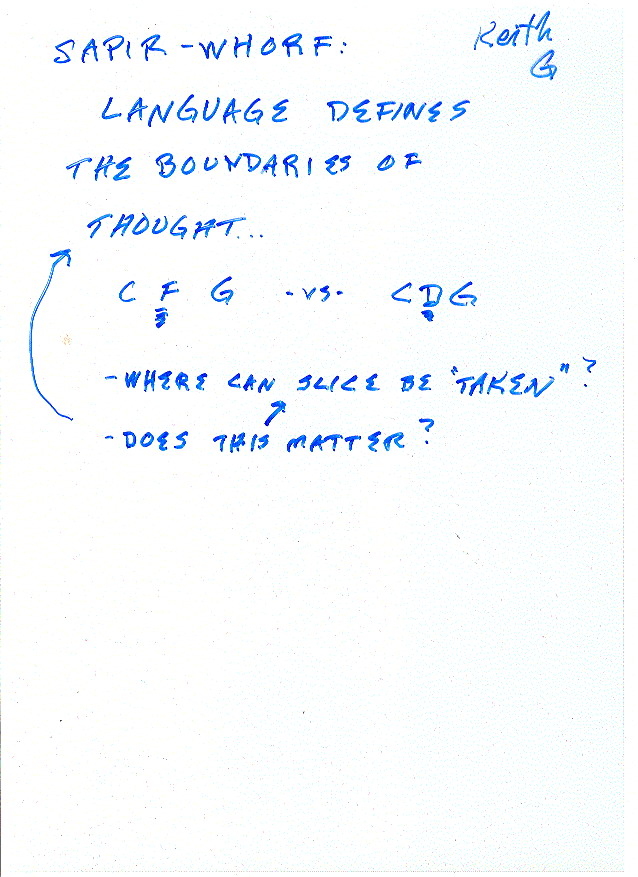 SAPIR-WHORF:
Keith
G
LANGUAGE DEFINES
THE BOUNDARIES OF
THOUGHT...
CFG -vs- CDG
-WHERE CAN SLICE BE "TAKEN"?
-DOES THIS MATTER?